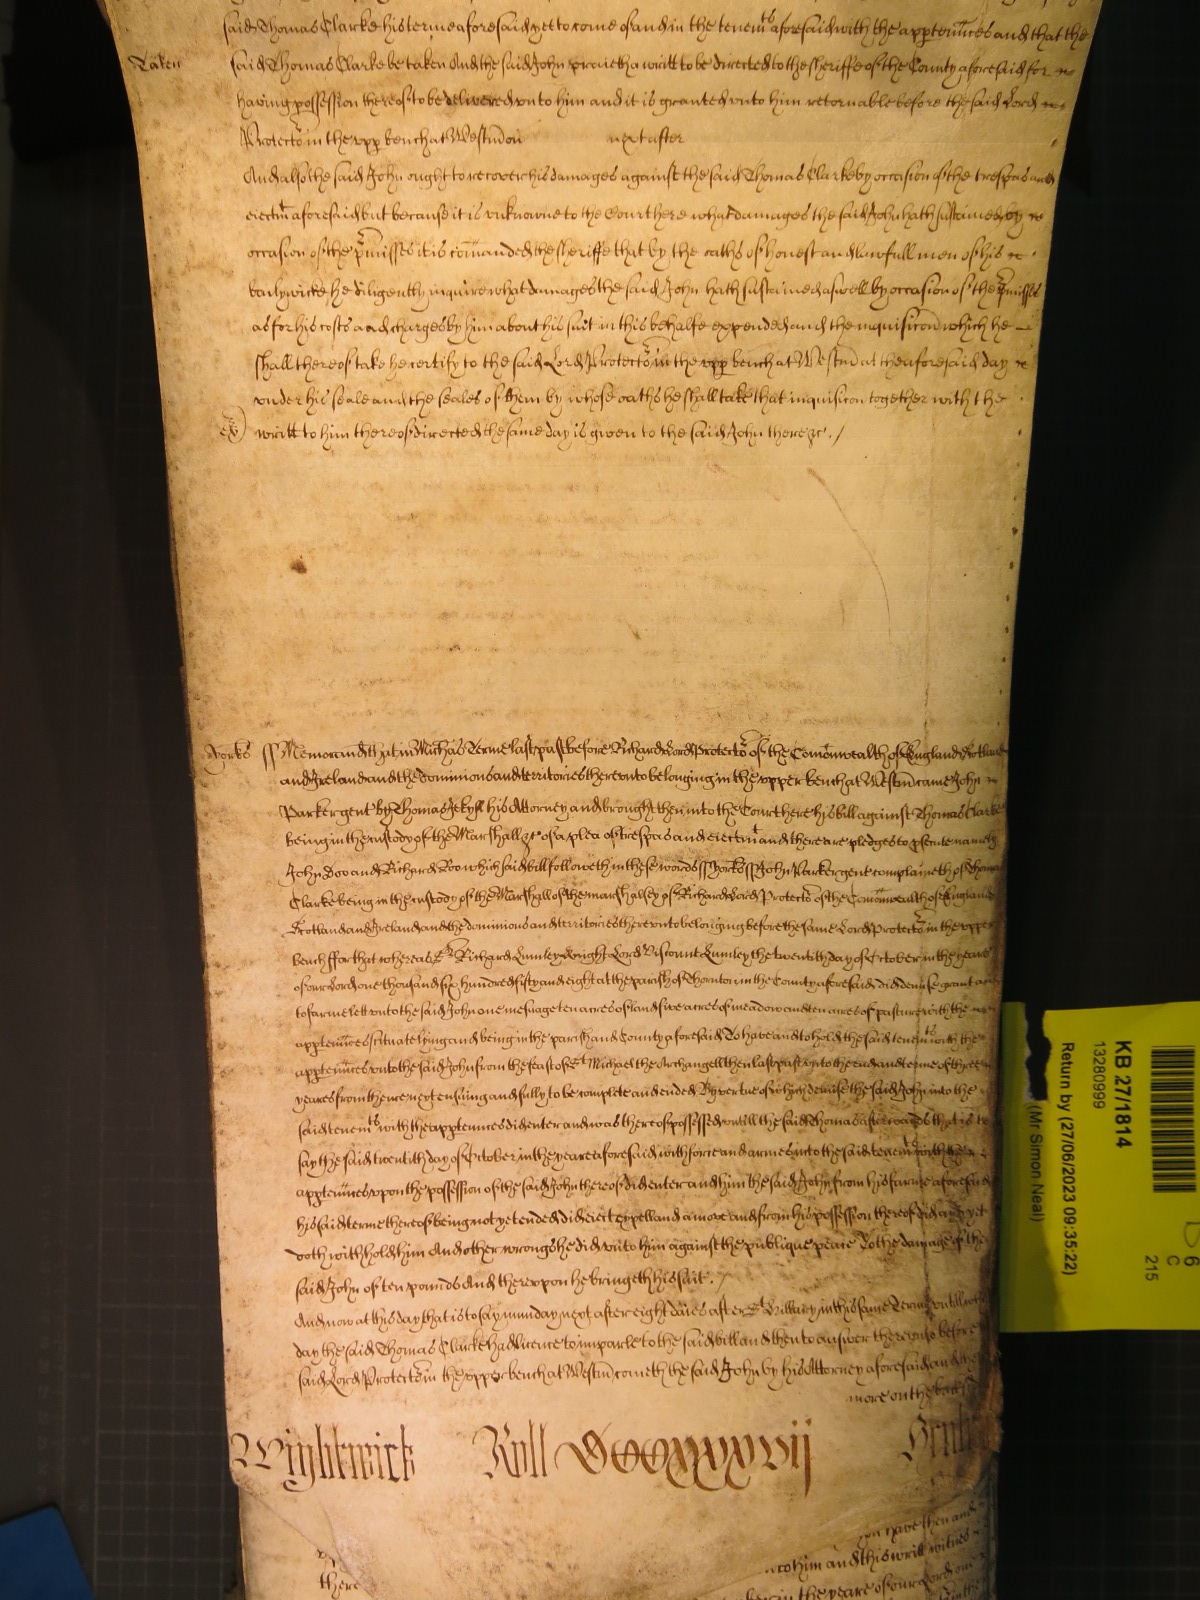 said Thomas Clarke his terme aforesaid yet to come of and in the tenemts aforesaid with the apptenn̄ces and that the
Taken said Thomas Clarke be taken And the said John prayeth a writt to be directed to the sheriffe of the County aforesaid for
having possession thereof to be delivered vnto him and it is granted vnto him retornable before the said Lord
Protector in the vpp bench at Westm̄ on next after
And also the said John ought to recover his damages against the said Thomas Clarke by occasion of the trespas and
eiectmt aforesaid but because it is vnknowne to the Court here what damages the said John hath sustained by
occasion of the p̄misses it is com̄anded the sheriffe that by the oaths of honest and lawfull men of his
bailywicke he diligently inquire what damages the said John hath sustained aswell by occasion of the p̄misses
as for his costs and charges by him about his suit in this behalfe expended and the inquisic̄on which he
shall thereof take he certify to the said Lord Protector in the vpp bench at Westm̄ at the aforesaid day
vnder his seale and the seales of them by whose oaths he shall take that inquisic̄on together with the
writt to him thereof directed the same day is given to the said John there &c. /
Yorks ss Memorand that in Michās Terme last past before Richard Lord Protector of the Com̄onwealth of England Scotland
and Ireland and the dominions and territories therevnto belonging in the vpper bench at Westm̄ came John
Parker gent by Thomas Jekyll his Attorney and brought then into the Court there his bill against Thomas Clarke
being in the custody of the Marshall &c of a plea of trespas and eiectmt and there are pledges to p̱secute namely
John Doo and Richard Roo which said bill followeth in these words ss Yorks ss John Parker gent complaineth of Thomas
Clarke being in the custody of the Marshall of the marshalsey of Richard Lord Protector of the Com̄onwealth of England
Scotland and Ireland and the dominions and territories therevnto belonging before the same Lord Protector in the vpper
bench ffor that whereas Sr Richard Lumley knight Lord Viscount Lumley the twentith day of October in the yeare
of our Lord one thousand six hundred fifty and eight at the parish of Thornton in the County aforesaid did demise grant and
to farme lett vnto the said John one mesuage ten acres of land five acres of meadow and ten acres of pasture with the
apptenn̄ces scituate lying and being in the parish and County aforesaid To have and to hold the said tenemts with the
apptenn̄ces vnto the said John from the feast of St Michael the Archangell then last past vnto the end and terme of three
yeares from thence next ensuing and fully to be complete and ended By vertue of which demise the said John into the
said tenemts with the apptenn̄ces did enter and was thereof possessed vntill the said Thomas afterwards that is to
say the said twentith day of October in the yeare aforesaid with force and armes into the said tenemts with the
apptenn̄ces vpon the possession of the said John thereof did enter and him the said John from his farme aforesaid
his said terme thereof being not yet ended did eiect expell and amove and from his possession thereof did and yet
doth withhold him And other wrongs he did vnto him against the publique peace To the damage of the
said John of ten pounds And therevpon he bringeth his suit. /
And now at this day that is to say munday next after eight daies after St Hillary in this same Terme vntill which
day the said Thomas Clarke had licence to imparle to the said bill and then to answer therevnto before
said Lord Protector in the vpper bench at Westm̄ cometh the said John by his Attorney aforesaid and the
more on the backe
Wightwick Roll DCCCXXXXVij
you have then and
to him and this writt witnes
there
in the yeare of our Lord one
KB 27/1814
13280999
Return by (27/06/2023 09:35:22)
(Mr Simon Neal)
6
C
215